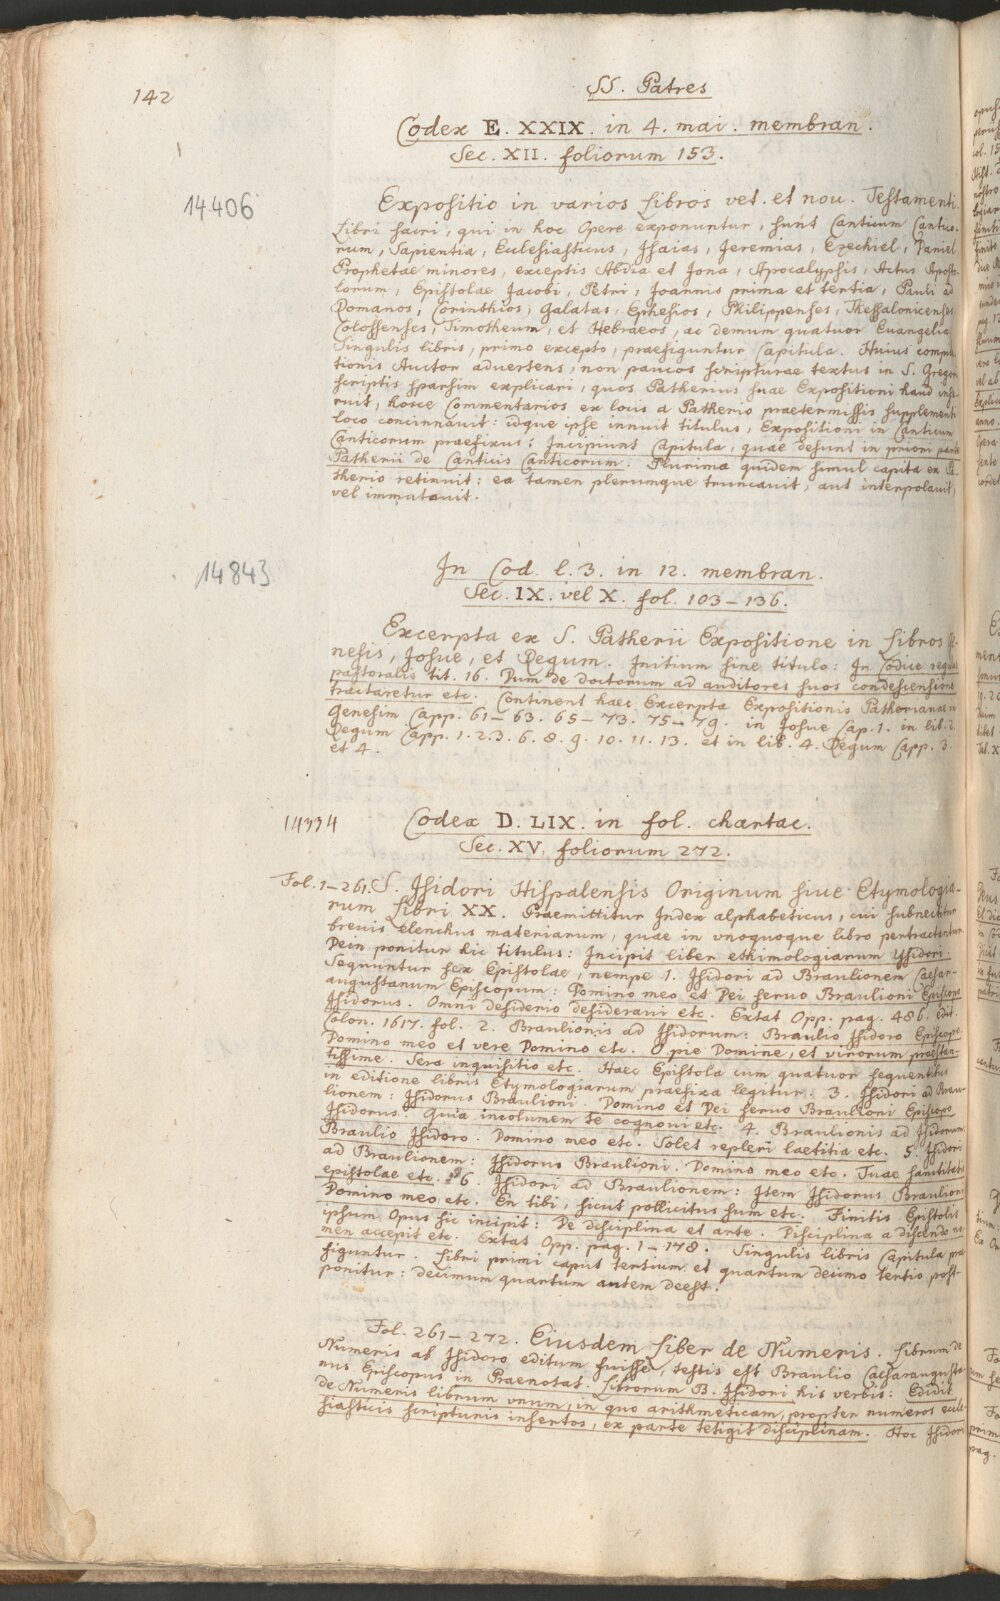 142
SS. Patres
Codex E. XXIX. in 4. mai. membran.
Sec. XII. foliorum 153.
14406
Expositio in varios Libros vet. et nou. Testamenti.
Libri sacri, qui in hoc Opere exponuntur, sunt Canticum Cantico-
rum, Sapientia, Ecclesiasticus, Isaias, Jeremias, Ezechiel, Daniel
Prophetae minores, exceptis Abdia et Jona, Apocalypsis, Actus Aposto-
lorum, Epistolae Jacobi, Petri, Joannis prima et tertia, Pauli ad
Romanos, Corinthios, Galatas, Ephesios, Philippenses, Thessalonicenses
Colossenses, Timotheum, et Hebraeos, ac demum quatuor Euangelia
Singulis libris, primo excepto, praefiguntur Capitula. Huius compila-
tionis Auctor aduertens, non paucos scripturae textus in S. Gregorii
scriptis sparsim explicari, quos Patherius suae Expositioni haud inse-
ruit, hosce Commentarios ex locis a Patherio praetermissis supplementi
loco concinnauit: idque ipse innuit titulus, Expositioni in Canticum
Canticorum praefixus: Incipiunt Capitula, quae desunt in priori parte
Patherii de Canticis Canticorum. Plurima quidem simul capita ex Pa-
therio retinuit: ea tamen plerumque truncauit, aut interpolauit,
vel immutauit.
14843
In Cod. l. 3. in 12. membran.
Sec. IX. vel X. fol. 103-136.
Excerpta ex S. Patherii Expositione in Libros Ge-
nesis, Josue, et Regum. Initium sine titulo: In Codice regulae
pastoralis tit. 16. Dum de doctorum ad auditores suos condescensione
tractaretur etc. Continent haec Excerpta Expositionis Patherianae in
Genesim Capp. 61-63. 65-73. 75-79. in Josue Cap. 1. in lib. 2.
Regum Capp. 1. 2. 3. 6. 8. 9. 10. 11. 13. et in lib. 4. Regum Capp. 3.
et 4.
14334
Codex D. LIX. in fol. chartac.
Sec. XV. foliorum 272.
Fol. 1-261. S. Isidori Hispalensis Originum siue Etymologia-
rum Libri XX. Praemittitur Index alphabeticus, cui subnectitur
breuis elenchus materiarum, quae in vnoquoque libro pertractantur
Dein ponitur hic titulus: Incipit liber ethimologiarum Ysidori.
Sequuntur sex Epistolae, nempe 1. Isidori ad Braulionem Caesar-
augustanum Episcopum: Domino meo et Dei seruo Braulioni Episcopo
Isidorus. Omni desiderio desideraui etc. Extat Opp. pag. 486. edit.
Colon. 1617. fol. 2. Braulionis ad Isidorum: Braulio Isidoro Episcopo
Domino meo et vere Domino etc. O pie Domine, et virorum praestan-
tissime. Sera inquisitio etc. Haec Epistola cum quatuor sequentibus
in editione libris Etymologiarum praefixa legitur. 3. Isidori ad Brau-
lionem: Isidorus Braulioni. Domino et Dei seruo Braulioni Episcopo
Isidorus. Quia incolumem te cognoui etc. 4. Braulionis ad Isidorum:
Braulio Isidoro. Domino meo etc. Solet repleri laetitia etc. 5. Isidori
ad Braulionem: Isidorus Braulioni. Domino meo etc. Tuae sanctitatis
epistolae etc. 6. Isidori ad Braulionem: Item Isidorus Braulioni
Domino meo etc. En tibi, sicut pollicitus sum etc. Finitis Epistolis
ipsum Opus sic incipit: De disciplina et arte. Disciplina a discendo no-
men accepit etc. Extat Opp. pag. 1-178. Singulis libris Capitula prae-
figuntur. Libri primi caput tertium et quartum decimo tertio post-
ponitur: decimum quartum autem deest.
Fol. 261-272. Eiusdem Liber de Numeris. Librum de
Numeris ab Isidoro editum fuisse, testis est Braulio Caesaraugusta-
nus Episcopus in Praenotat. Librorum B. Isidori his verbis: Edidit
de Numeris librum vnum, in quo arithmeticam, propter numeros eccle-
siasticis scripturis insertos, ex parte tetigit disciplinam. Hoc Isidori